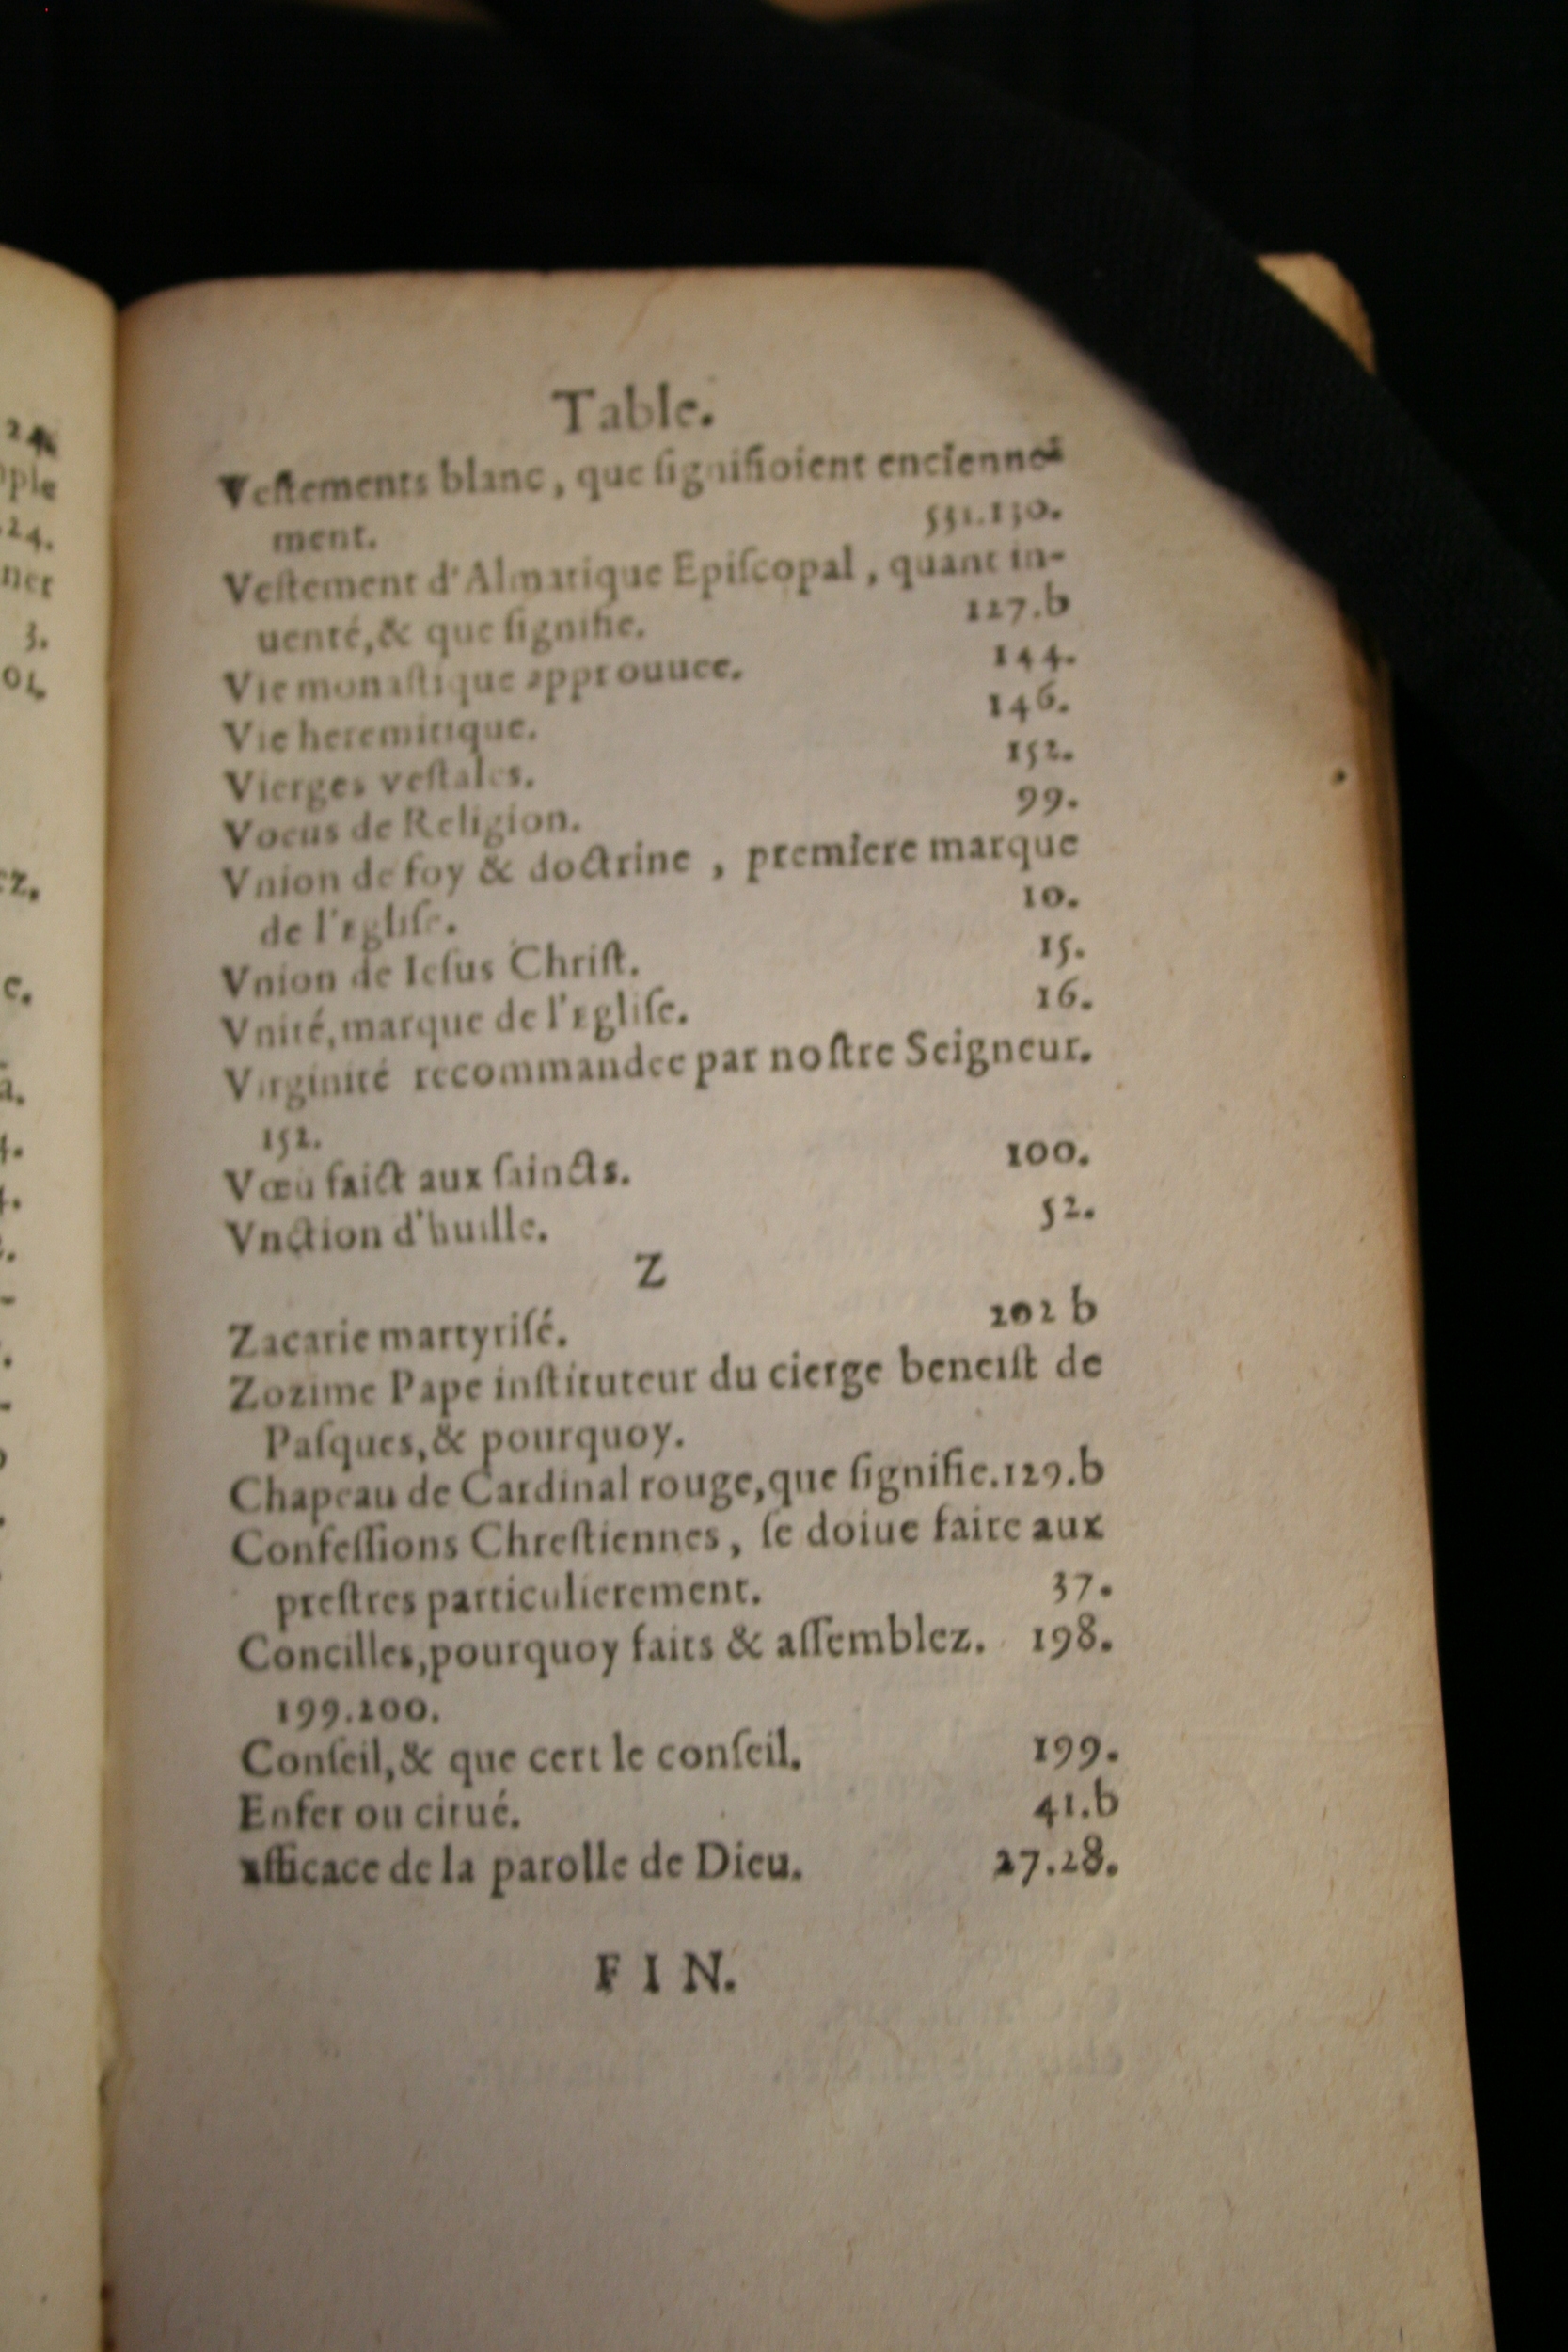 24.
ple
.24.
ner
3.
01.
ez.
e.
a.
4.
Table.
Veſtements blanc, que ſignifioient encienne-
ment. 531.130.
Veſtement d'Almatique Epiſcopal, quant in-
uenté,& que ſignifie. 127.b
Vie monaſtique approuuee. 144.
Vie heremitique. 146.
Vierges veſtales. 152.
Voeus de Religion. 99.
Vnion de foy & doctrine, premiere marque
de l'Egliſe. 10.
Vnion de Ieſus Chriſt. 15.
Vnité,marque de l'Egliſe. 16.
Virginité recommandee par noſtre Seigneur.
152.
Vœu faict aux ſaincts. 100.
Vnction d'huille. 52.
Z
Zacarie martyriſé. 202 b
Zozime Pape inſtituteur du cierge beneiſt de
Paſques,& pourquoy.
Chapeau de Cardinal rouge,que ſignifie.129.b
Confeſſions Chreſtiennes, ſe doiue faire aux
preſtres particulierement. 37.
Concilles,pourquoy faits & aſſemblez. 198.
199.200.
Conſeil,& que cert le conſeil. 199.
Enfer ou citué. 41.b
Efficace de la parolle de Dieu. 27.28.
FIN.